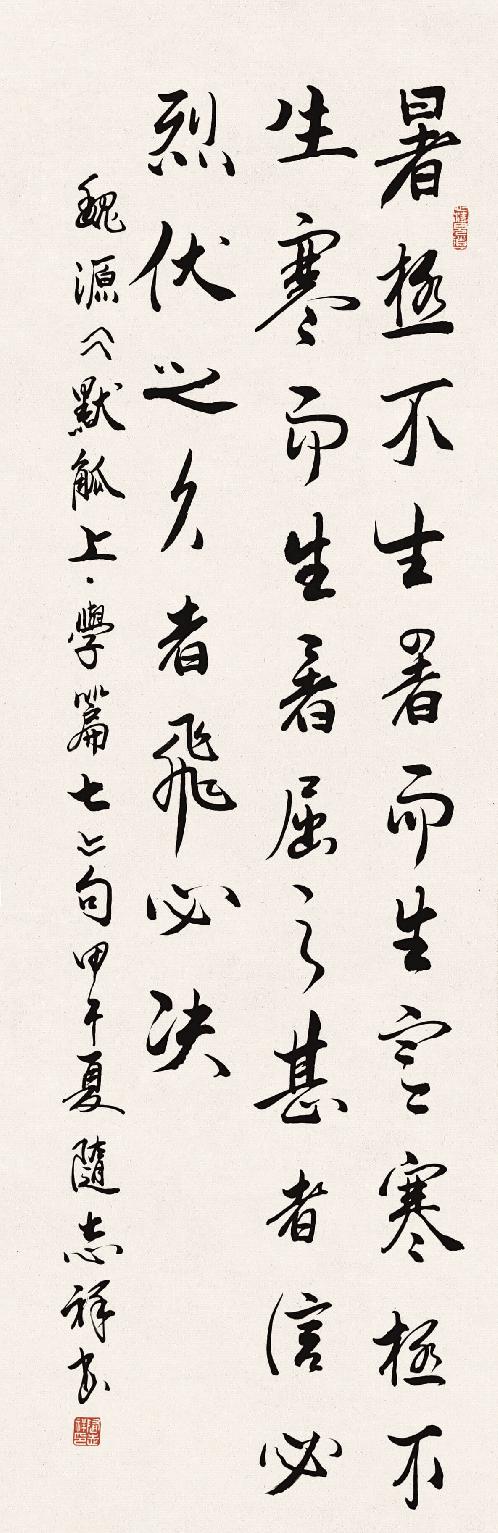 暑極不生暑而生寒寒極不
生寒而生暑屈之甚者信必
烈伏之久者飛必决
魏源《默觚上·學篇七》句甲午夏隨志祥书